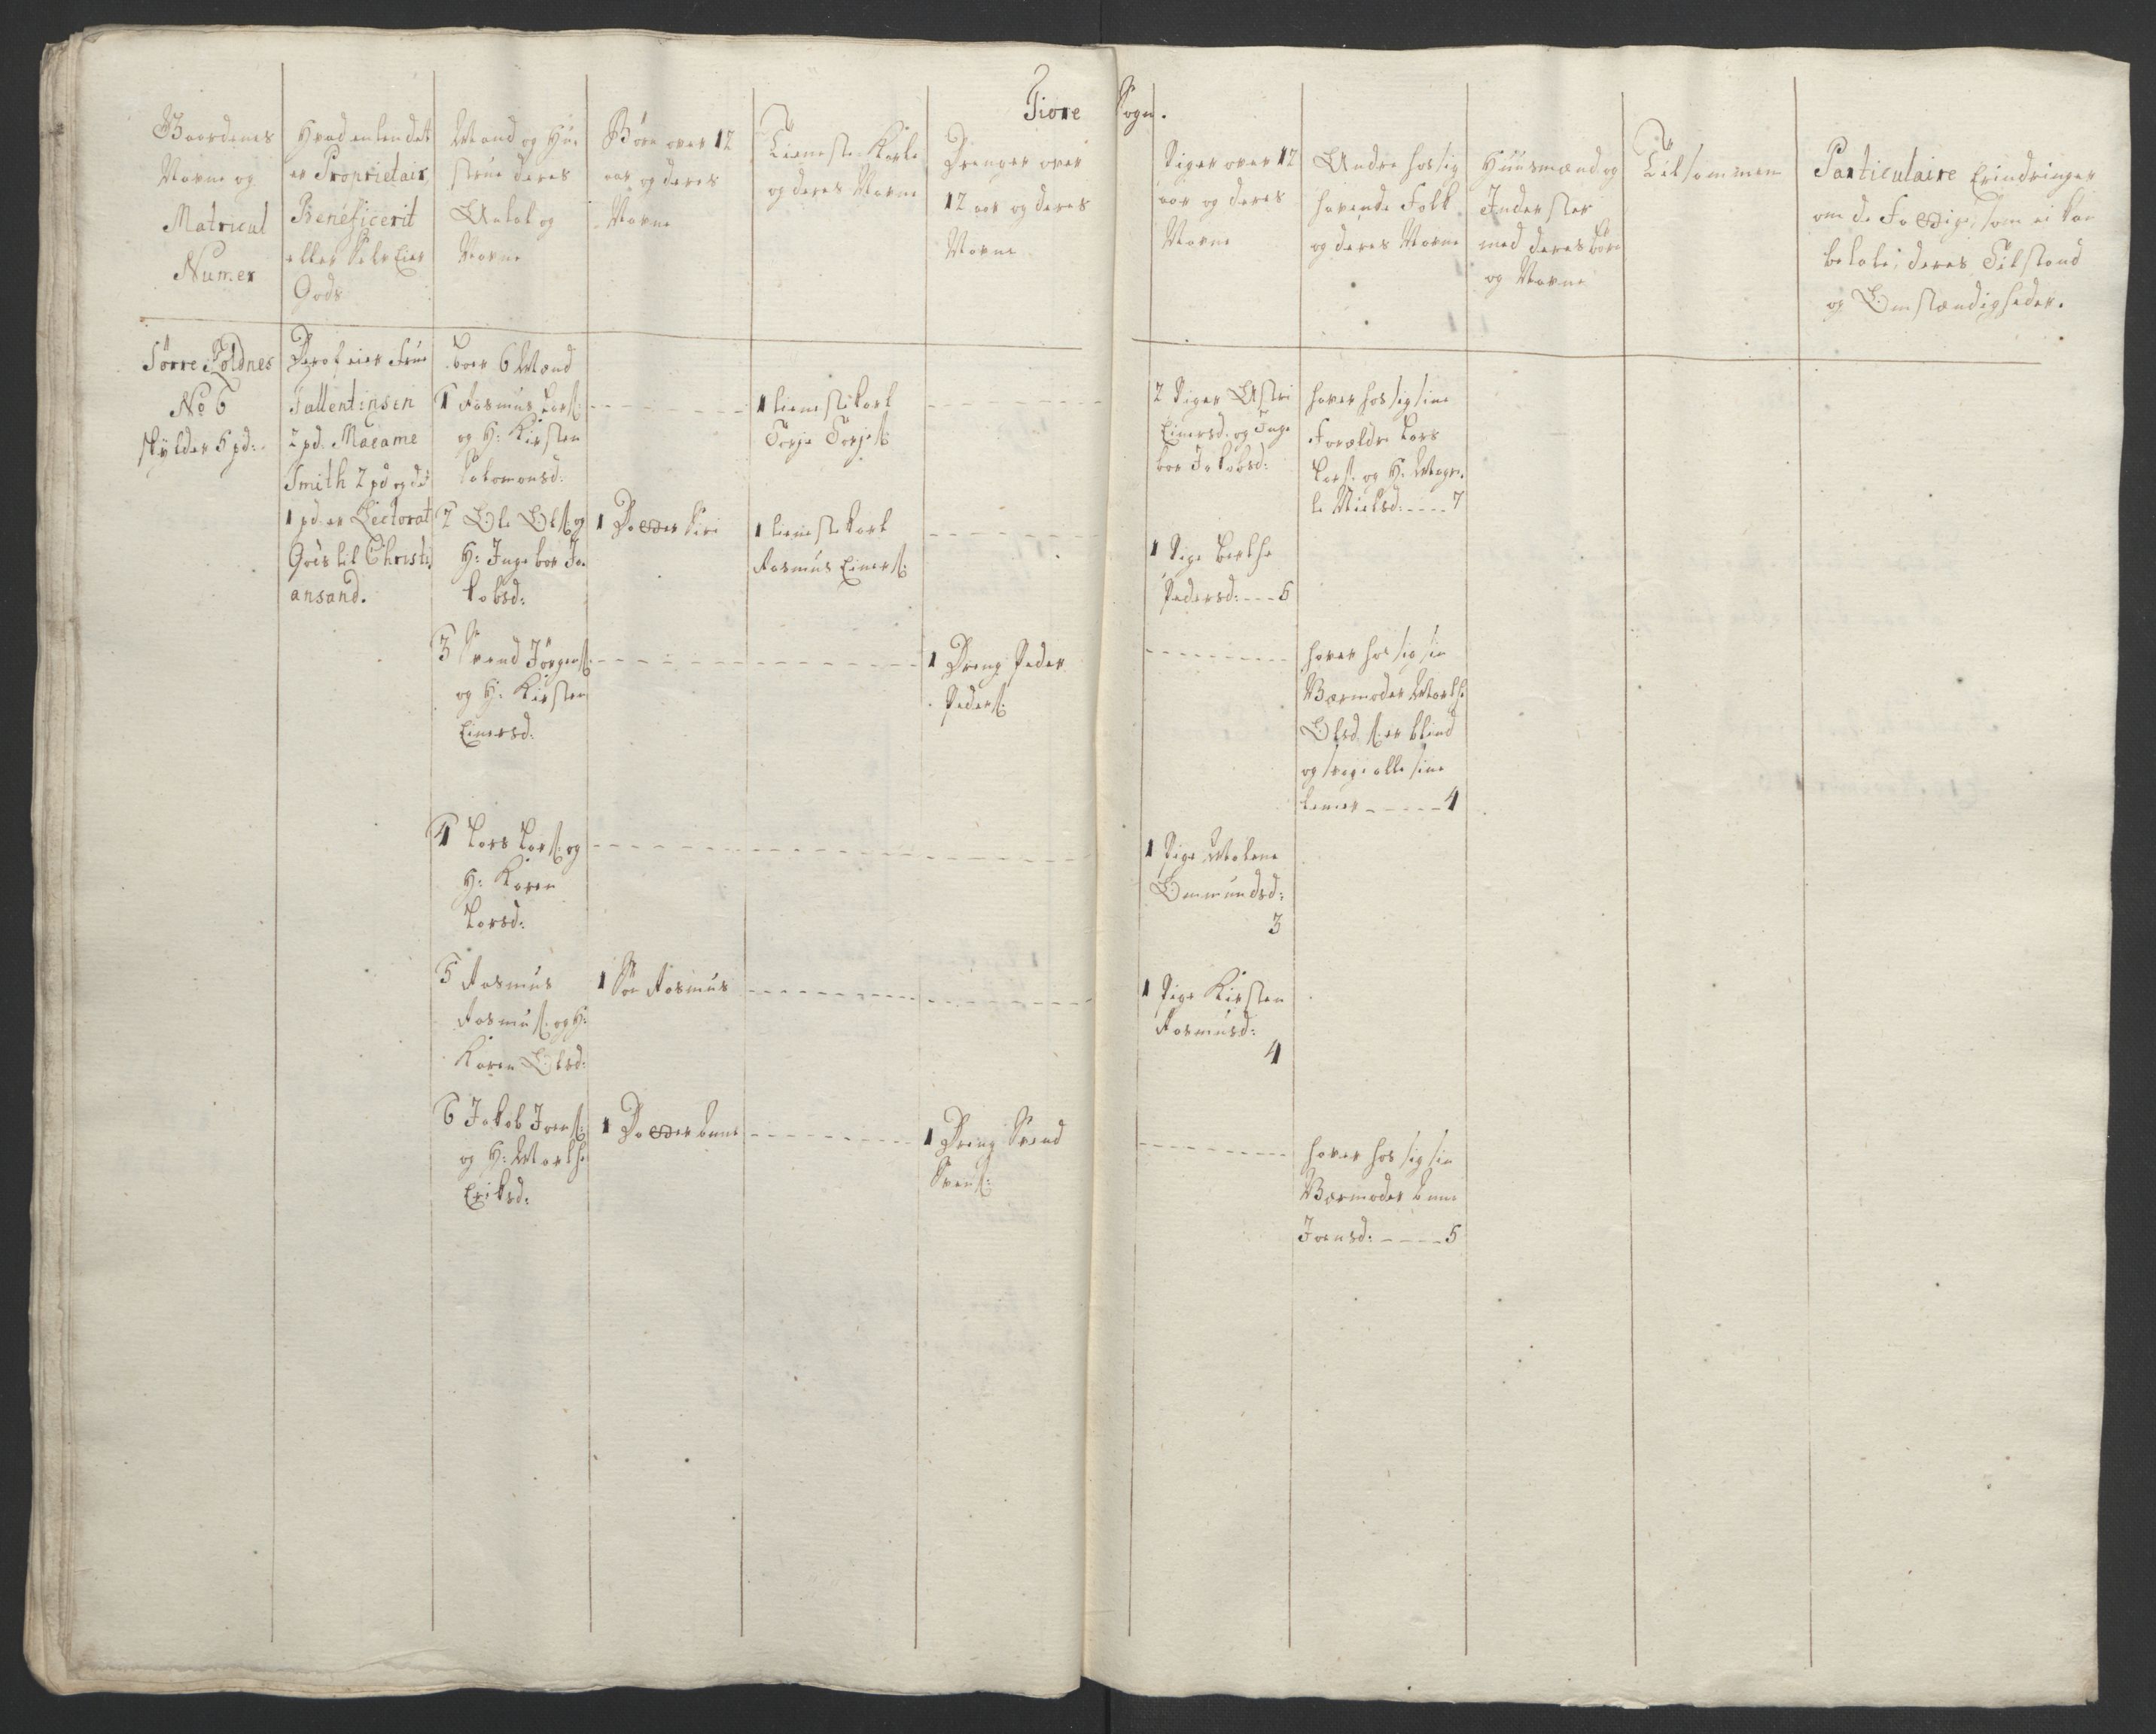 Tiore Sogn.
Gaardenes
Navne og
Matricul
Numer
Hvad enten det
er Proprietair,
Beneficerit
eller Selv Eier
Gods
Mand og Hu-
strue deres
Antal og
Navne
Børn over 12
aar og deres
Navne
Tieneste Karle
og deres Navne
Drenger over
12 aar og deres
Navne
Piger over 12
aar og deres
Navne
Andre hos sig
havende Folk
og deres Navne
Huusmænd og
Inderster
med deres børn
og Navne
Tilsammen
Particulaire Erindringer
om de Fattige, som ei kan
betale, deres Tilstand
og Omstændigheder.
Sørre Foldnes
No 6
skylder 5 pd:
Deraf eier Frue
Tallentinsen
2 pd. Madame
Smith 2 pd og det
1 pd. er Lectorat
Gods til Christi-
ansand.
boer 6 Mænd
1 Rasmus Lars:
og H: Kirsten
Salomonsd:
1 tieneste karl
Torje Torjes:
2 Piger Astri
Einersd: og Inge
bor Jakobsd:
haver hos sig sine
Forældre Lars
Lars: og H: Magre-
te Nielsd: ---- 7
2 Ole Ols: og
H: Ingebor Ja-
kobsd:
1 Datter Siri
1 tieneste karl
Rasmus Einers:
1 Pige Berthe
Pedersd: --- 6
3 Svend Jørgens:
og H: Kirsten
Einersd:
1 Dreng Peder
Peders:
haver hos sig sin
Værmoder Marthe
Olsd. s: er blind
og svag i alle sine
Lemer ----- 4
4 Lars Lars: og
H: Karen
Larsd:
1 Pige Malene
Ommundsd:
3
5 Rasmus
Rasmus: og H:
Karen Olsd:
1 Søn Rasmus
1 Pige Kirsten
Rasmusd:
4
6 Jakob Joens:
og H: Marthe
Eriksd:
1 Datter Anne
1 Dreng Svend
Svens:
haver hos sig sin
Værmoder Anne
Joensd: ----- 5